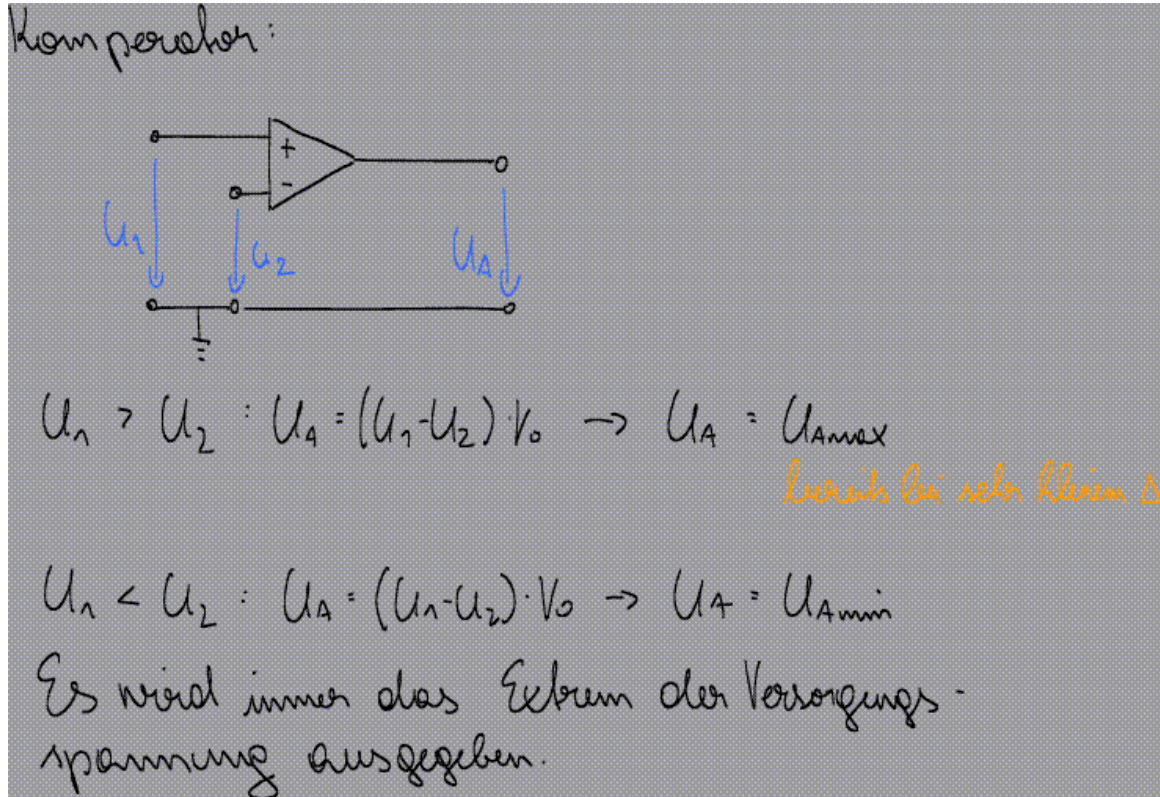 Komperator:
+
-
U₁
U₂
U_A
U₁ > U₂ : U_A = (U₁-U₂)·V₀ → U_A = U_Amax
bereits bei sehr kleinem Δ
U₁ < U₂ : U_A = (U₁-U₂)·V₀ → U_A = U_Amin
Es wird immer das Extrem der Versorgungs-
spannung ausgegeben.